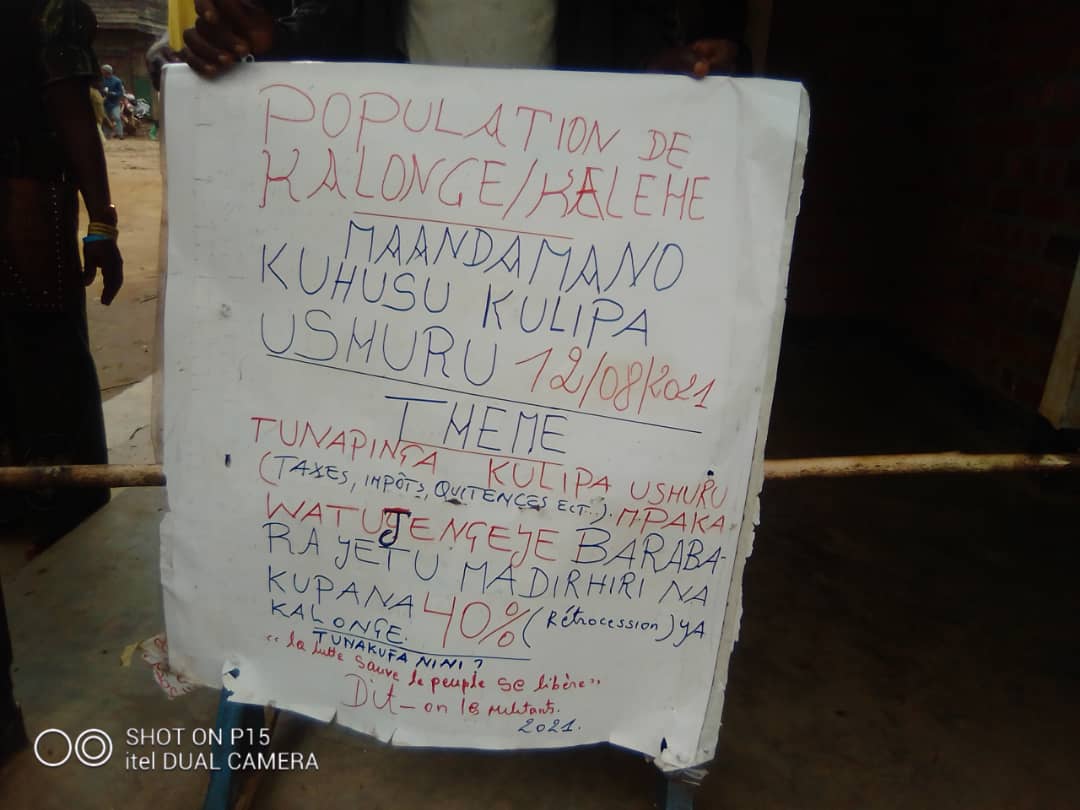 POPULATION DE
KALONGE/KALEHE
MAANDAMANO
KUHUSU KULIPA
USHURU 12/08/2021
THEME
TUNAPINGA KULIPA USHURU
(TAXES, IMPÔTS, QUITENCES ECT..). MPAKA
WATUJENGEYE BARABA-
RA YETU MADIRHIRI NA
KUPANA 40% (Rétrocession) YA
KALONGE.
TUNAKUFA NINI?
"la lutte sauve le peuple se libère"
Dit-on les militants.
2021.
SHOT ON P15
itel DUAL CAMERA